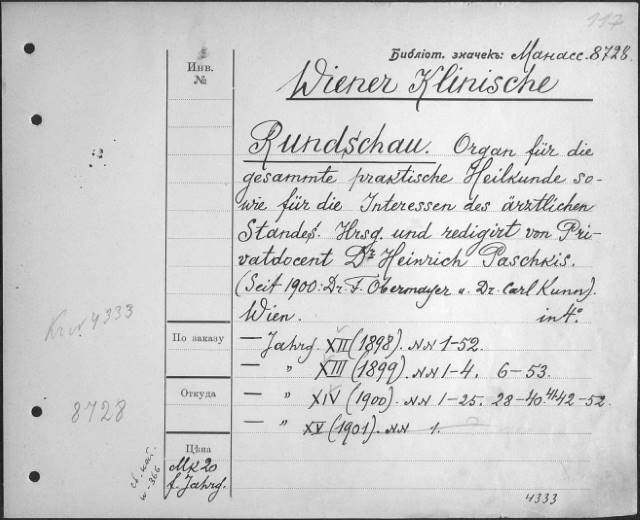 117
Библіот. значекъ: Манасс. 8728.
Инв.
№
Wiener Klinische
Rundschau. Organ für die
gesammte praktische Heilkunde so-
wie für die Interessen des ärztlichen
Standes. Hrsg. und redigirt von Pri-
vatdocent Dr Heinrich Paschkis.
(Seit 1900: Dr. F. Obermayer u. Dr. Carl Kunn).
Wien. in 4°.
4333
По заказу
— Jahrg. XII (1898). NN 1-52.
— „ XIII (1899). NN 1-4. 6-53.
Откуда
— „ XIV (1900). NN 1-25. 28-40 41. 42-52.
8728
— „ XV (1901). NN 1.
Цѣна
Mk 20
f. Jahrg.
4333